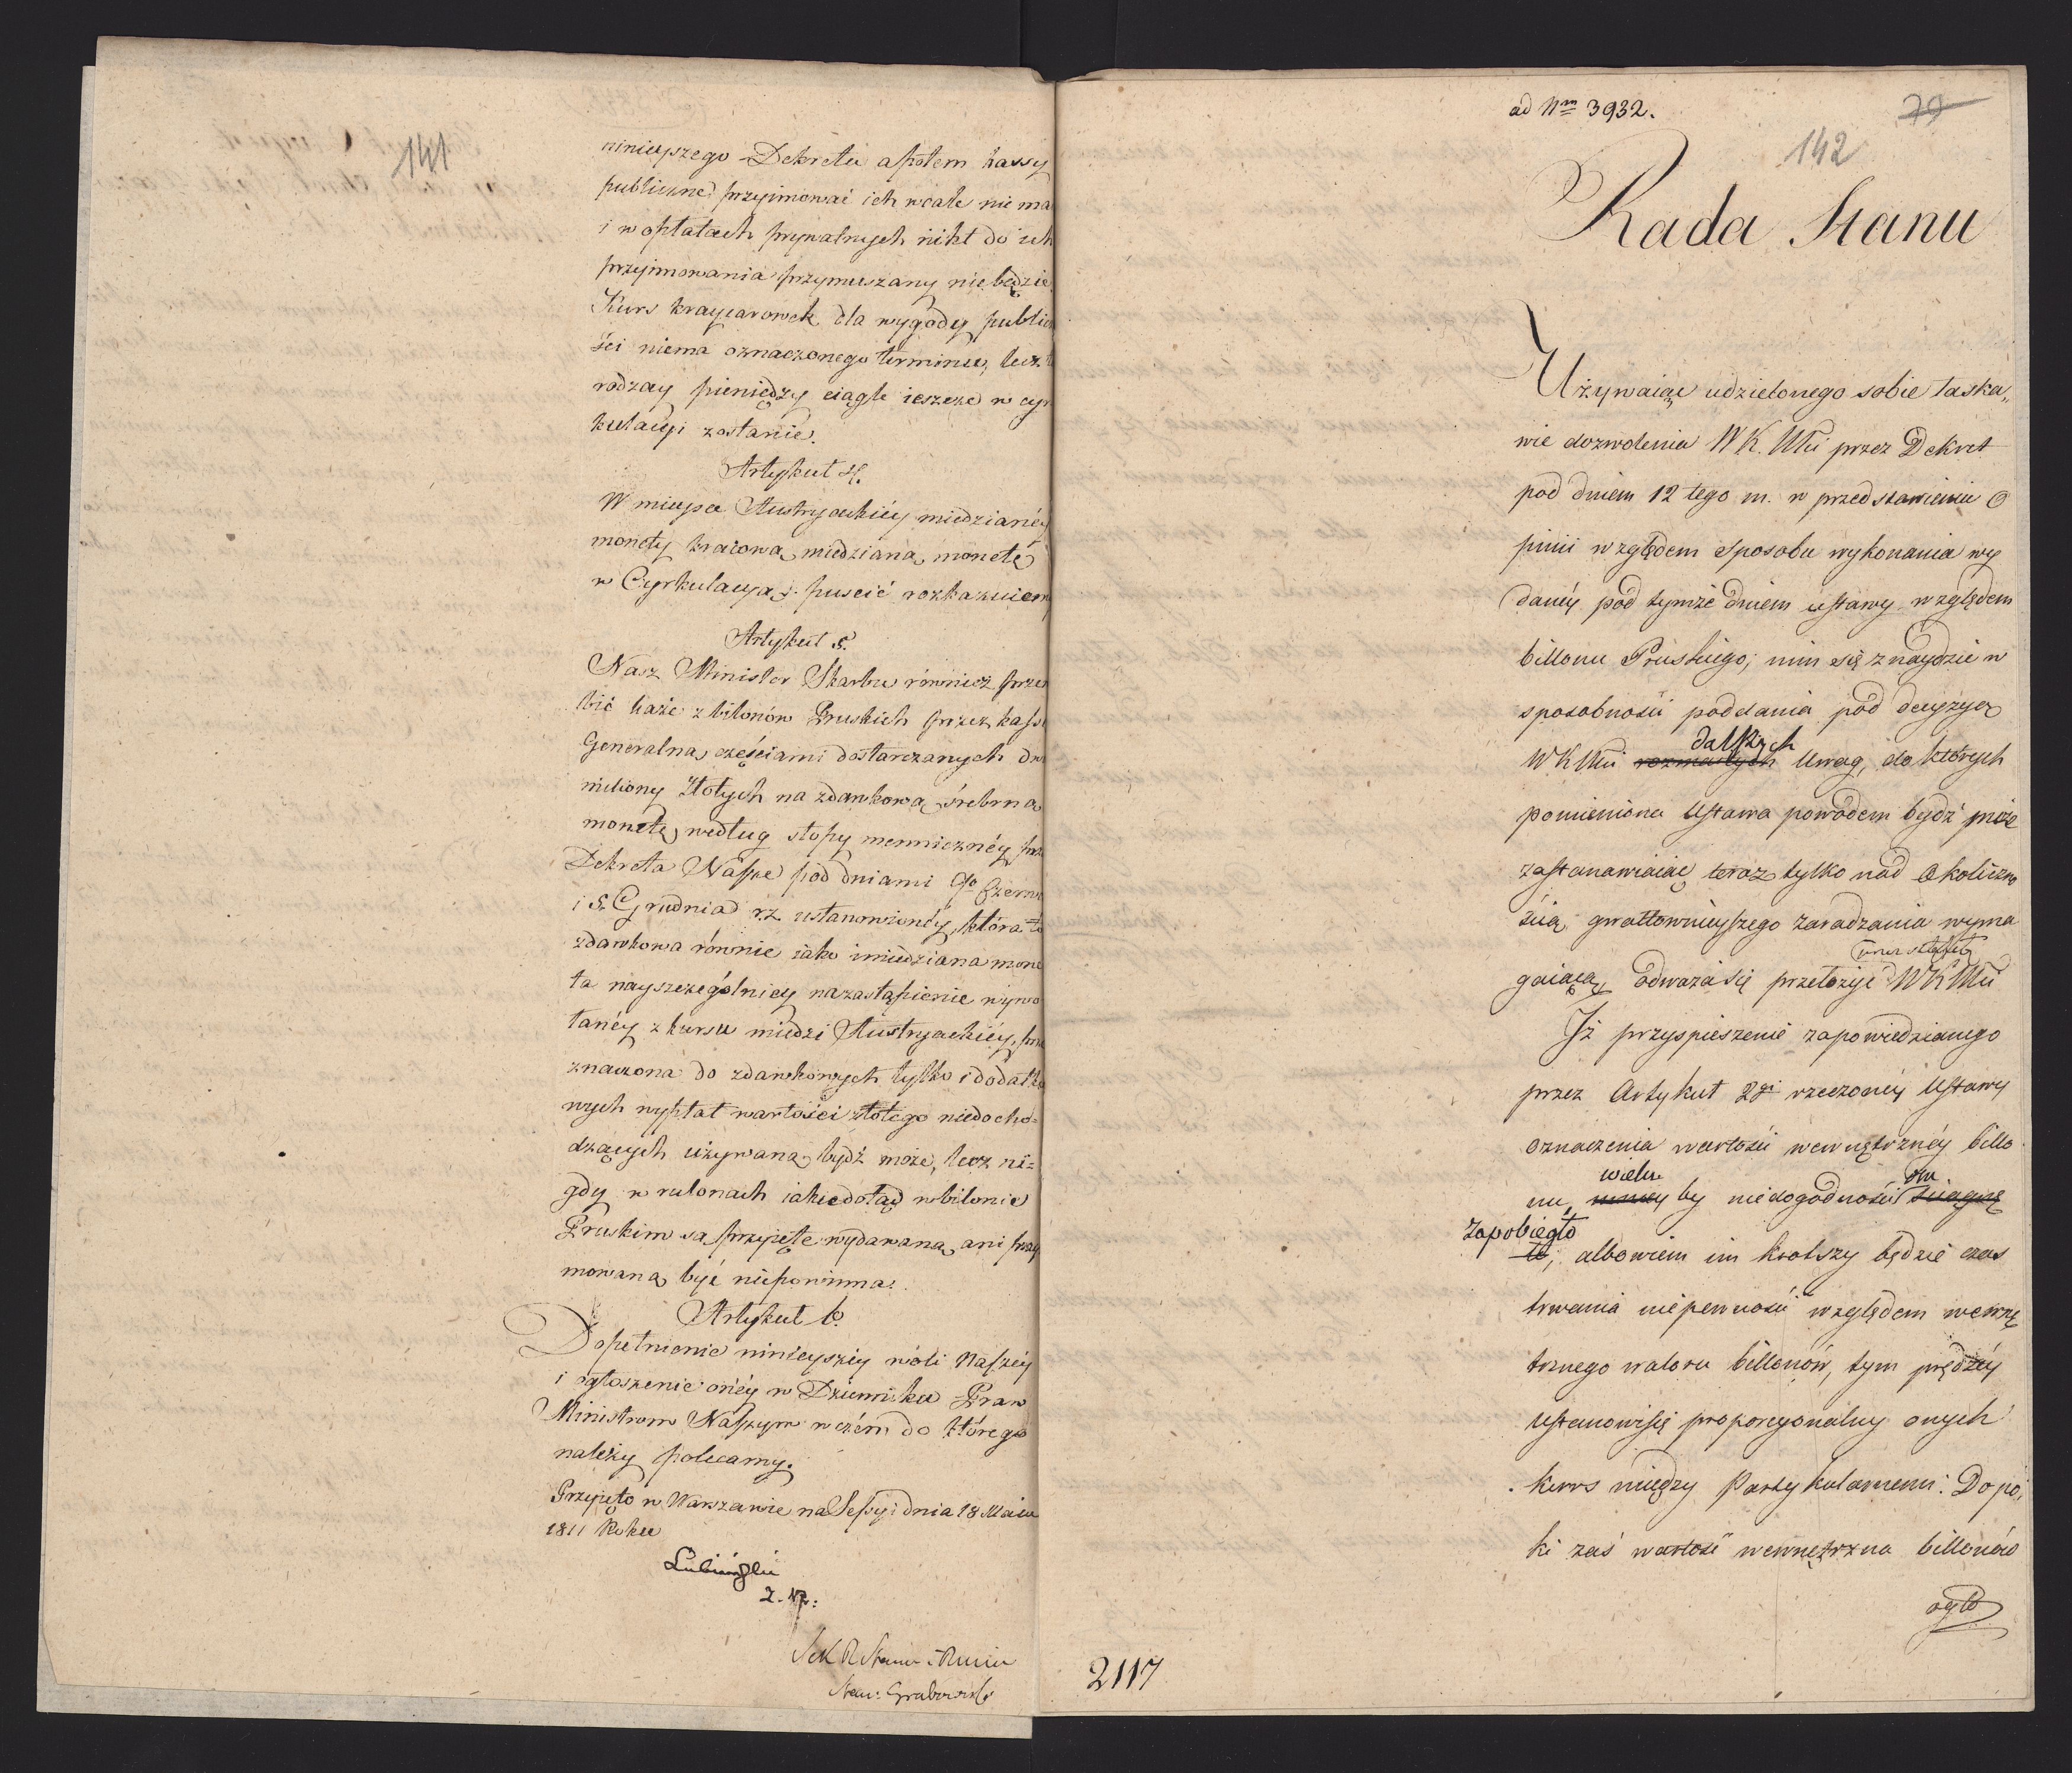 141
ninieyszego Dekretu a potem kassy
publiczne przyimować ich wcale nie ma
i w opłatach prywatnych nikt do ich
przyimowania przymuszany nie będzie.
Kurs kraycarowek dla wygody public
ści niema oznaczonego terminu, lecz
rodzay pieniędzy ciągle ieszcze w cyr
kulacyi zostanie.
Artykuł 4.
W mieysce Austryackiéy miedzianéy
monety kraiową miedzianą monetę
w Cyrkulacyą puscić rozkazuiem
Artykuł 5.
Nasz Minister Skarbu równiez prze
bić każe z bilonów Pruskich przez kass
Generalną częściami dostarczanych dw
miliony Złotych na zdawkową śrebrną
monetę według stopy menniczney prz
Dekreta Nasze pod dniami 9go Czerw
i 5. Grudnia r.z. ustanowionéy, która to
zdawkowa równie iako i miedziana mone
ta nayszczególniey na zastąpienie wywo
łanéy z kursu miedzi Austryackiéy, prze
znaczona do zdawkowych tylko i dodatko
wych wypłat wartości złotego niedocho-
dzących używaną bydź może, lecz ni-
gdy w rulonach iakie dotąd w bilonie
Pruskim są przyięte wydawaną, ani przy
mowaną być niepowinna.
Artykuł 6.
Dopełnienie ninieyszéy woli Naszéy
i ogłoszenie onéy w Dzienniku Praw
Ministrom Naszym w czém do którego
należy polecamy.
Przyięto w Warszawie na Sessyi dnia 18 Maia
1811 Roku
Lubieński
Sek R Stanu
Stan: Grabowski
ad Nm 3932.
79
142
Rada Stanu
Używaiąc udzielonego sobie łaska„
wie dozwolenia W K. Mci przez Dekret
pod dniem 12 tego m. w przedstawieniu O
pinii względem sposobu wykonania wy
danéy pod tymże dniem ustawy względem
billonu Pruskiego; nim się znaydzie w
sposobności poddania pod decyzyą
dalszych
WKMci rozmaitych Uwag, do których
pomieniona Ustawa powodem bydź może
zastanawiaiąc teraz tylko nad Okoliczno
ścią gwałtownieyszego zaradzania wyma
gaiącą, odważa się przełożyć WKMci
Iż przyspieszenie zapowiedzianego
przez Artykuł 2gi rzeczonéy Ustawy
oznaczenia wartości wewnętrznéy billo
wielu
nu, by niedogodności
zapobiegło
to; albowiem im krotszy będzie czas
trwania niepewności względem wewnę
trznego waloru billonów, tym prędzéy
ustanowi się proporcyonalny onych
kurs między Partykularnemi: Dopó,
ki zaś wartość wewnętrzna billonów
ogło
2117